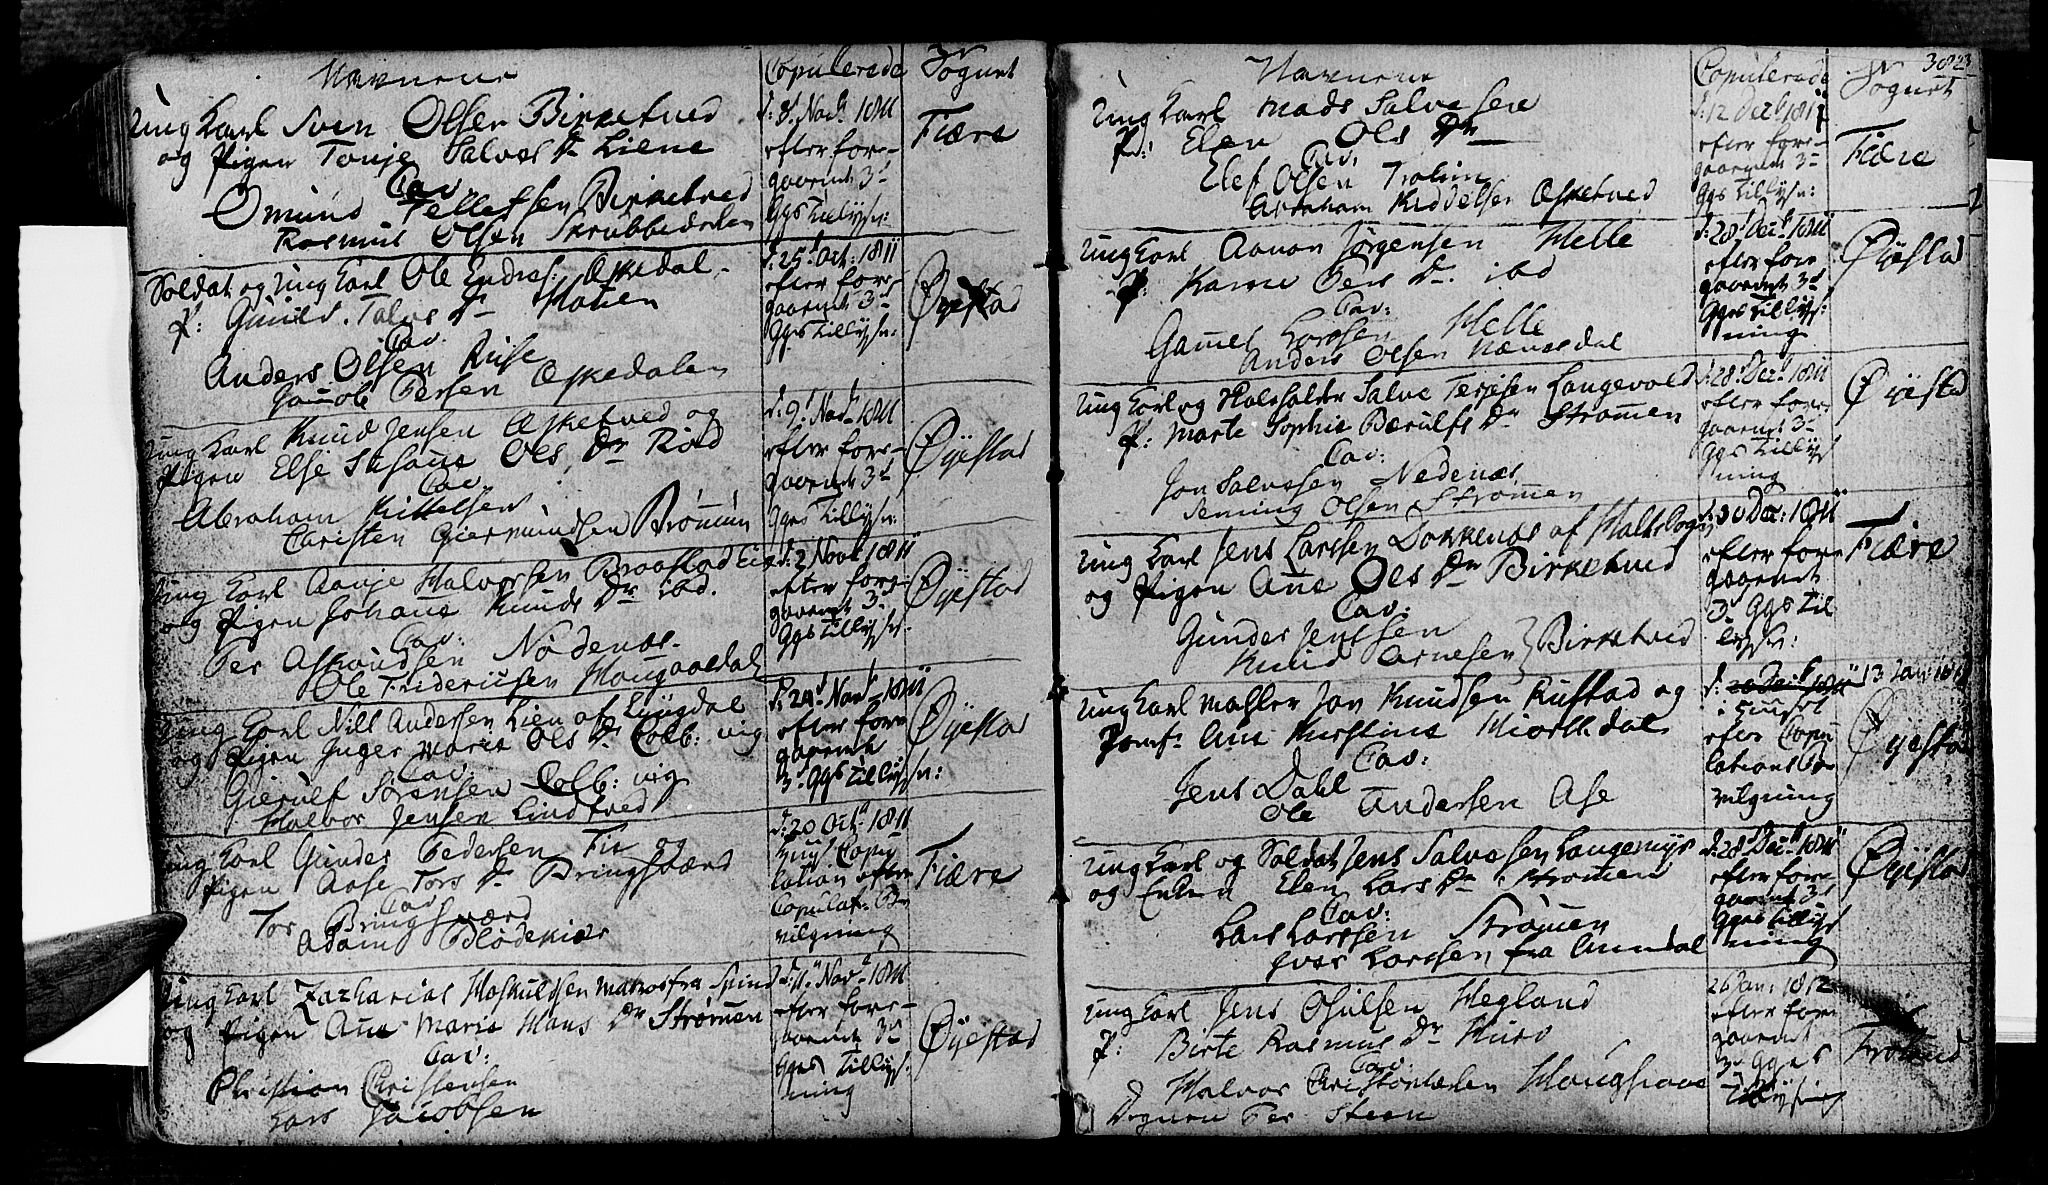 Navnene
Copulerede
Sognet
ung Karl Sven Olsen Birketved
og Pigen Tonje Salves Dr Liene
Cav
Omund Tellefsen Birketved
Rasmus Olsen Skrubbedalen
d: 8d Novb 1811
efter fore-
gaaende 3de
Ggs Tillysn:
Fiære
Soldat og ung Karl Ole Endres: Askedal
P: Gunild Talos Dr
Cav
Anders Olsen Riise
Jacob Persen Askedalen
d: 25d Oct: 1811
efter fore
gaaende 3de
Ggs Tillysn:
Øyestad
ung Karl Knud Jensen Asketved og
Pigen Else Susane Ols Dr Riod
Cav
Abraham Kittelsen
Christen Giermundsen Brømun
d: 9d Novb 1811
efter fore-
gaaende 3de
Ggs Tillysn:
Øyestad
ung Karl Aanje Halvorsen Braastad
og Pigen Johane Knuds Dr ibd.
Cav:
Per Asmundsen Nedenæs
Ole Friderichsen Hougaadal
d: 2 Novb 1811
efter fore
gaaende 3de
Ggs Tillysn.
Øyestad
ung Karl Nils Andersen Lien af Lyngdal
og Pigen Inger Marie Ols Dr Colb: vig
Cav:
Gierulf Sørensen Colb: vig
Halvor Jensen Lindtved
d: 24d Novb 1811
efter fore
gaaende
3d Ggs Tillysn:
Øyestad
ung Karl Gunder Pedersen Fie og
Pigen Aase Tors Dr Bringsværd
Cav
Tor Bringsværd
Adam Blødekiær
d: 20 Octb 1811
Copu
lation efter
Copulat: Be
vilgning
Fiære
ung Karl Zacharias Hoskuldsen Matros fra Spind
og Pigen Ane Marie Hans Dr Strømen
Cav:
Christian Christensen
Lars Jacobsen
Novb 1811
efter fore-
gaaende 3de
Ggs Tillysn:
ning
Øyestad
Navnene
Copulerede
Sognet
ung Karl Mads Salvesen
P: Elen Ols Dr
Cav.
Elef Olsen Trolim
Abraham Kiddelsen Asketved
d: 12 Decb 1811
efter fore-
gaaende 3de
Ggs Tillysn:
Fiære
ung Karl Aanon Jørgensen Helle
P: Karen Pers Dr. ibd
Cav:
Gamel Larssen Helle
Anders Olsen Nævesdal
d: 28d Decb 1811
efter fore
gaaende 3de
Ggs Tillys:
ning
Øyestad
ung Karl og Salve Terjesen Langevold
P: Marte Sophie Bærulfs Dr Strømmen
Cav:
Jon Salvesen Nedenæs
Jeming Olsen Strømmen
d: 28d Decb 1811
efter fore
gaaende 3de
Ggs Tillys
ning
Øyestad
ung Karl Jens Larssen Dokkenæs af Halt Sogn
og Pigen Ane Ols Dr Birketved
Cav:
Gunder Jenssen
Knud Arnesen } Birketved
d: 30 Dec: 1811
efter fore
gaaende
3d Ggs Til
lysn:
Fiære
ung Karl Jon Knudsen Rustad og
Jomf: Ane Kirstine Hiortsdal
Cav:
Jens Dahl
Ole Andersen Ase
13 Jan: 1812
i Huuset
efter Copu
lations Be
vilgning
Øyestad
ung Karl og Soldat Jens Salvesen Langemyr
og Enken Elen Lars Dr Strømen
Cav:
Lars Larssen Strømen
Iver Larssen fra Arendal
d: 28d Decb 1811
efter fore
gaaende 3de
Ggs Tillys
ning
Øyestad
ung Karl Jens Osulsen Hegland
P: Birte Rasmus Dr Hurv
Cav:
Halvor Christensen
Per Steen
26 Jan: 1812
efter fore
gaaende
3de Gges
Tillysning
Froland